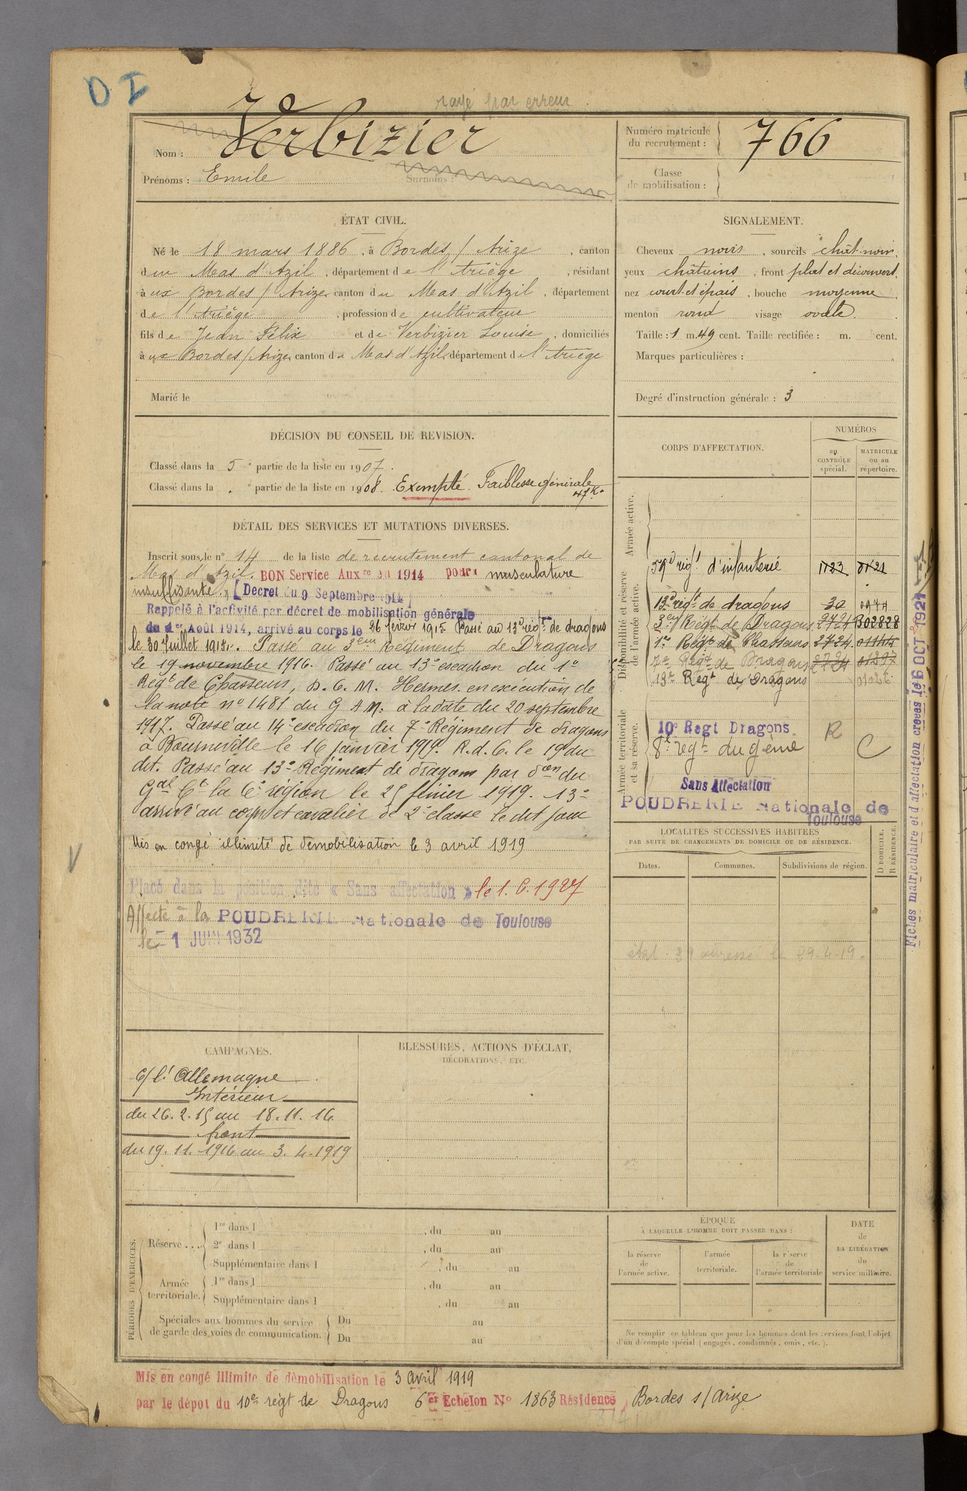 D I
rayé par erreur
Nom : Verbizier
Prénoms : Emile Surnoms
Numéro matricule du recrutement : 766
Classe de mobilisation :
ÉTAT CIVIL.
Né le 18 mars 1886, à Bordes s/ Arize, canton
du Mas d'Azil, département de l'Ariège, résidant
à ux Bordes s/ Arize, canton du Mas d'Azil, département
de l'Ariège, profession de cultivateur
fils de Jean Félix et de Verbizier Louise, domiciliés
à ux Bordes s/Arize, canton du Mas d'Azil, département de l'Ariège
Marié le
SIGNALEMENT.
Cheveux noirs, sourcils chât-noir,
yeux châtains, front plat et découvert,
nez court et épais, bouche moyenne,
menton rond visage ovale.
Taille : 1 m. 49 cent. Taille rectifiée : m. cent.
Marques particulières :
Degré d'instruction générale : 3
DÉCISION DU CONSEIL DE REVISION.
Classé dans la 5e partie de la liste en 1907.
Classé dans la . e partie de la liste en 1908. Exempté. Faiblesse générale
47 K.
DÉTAIL DES SERVICES ET MUTATIONS DIVERSES.
Inscrit sous le n° 14 de la liste de recrutement cantonal de
Mas d'Azil. BON Service Auxre en 1914 pour musculature
insuffisante. [Décret du 9 Septembre 1914]
Rappelé à l'activité par décret de mobilisation générale
du 1er Août 1914, arrivé au corps le 26 février 1915. Passé au 13e régt de dragons
le 30 juillet 1915. Passé au 3ème Régiment de Dragons
le 19 novembre 1916. Passé au 13e escadron du 1er
Régt de Chasseurs, D. C. M. Hermes. en exécution de
la note n° 1481 du G A M. à la date du 20 septembre
1917. Passé au 14e escadron du 7e Régiment de dragons
à Bourneville le 16 janvier 1919. R. d. C. le 19 du
dit. Passé au 13e Régiment de dragons par don du
Gal Ct la 6e région le 25 février 1919. 13e
arrivé au corps et cavalier de 2e classe le dit jour
Mis en congé illimité de démobilisation le 3 avril 1919
Placé dans la position dite « Sans affectation » le 1. 6. 1927
Affecté à la POUDRERIE Nationale de Toulouse
le 1 JUIN 1932
CORPS D'AFFECTATION.
NUMÉROS
au CONTRÔLE spécial.
MATRICULE ou au répertoire.
Armée active.
Disponibilité et réserve de l'armée active.
59e régt d'infanterie 1123
13e régt de dragons 30
3e Régt de Dragons 2721 B02828
1er Régt de Chasseurs 2724
7e Régt de Dragons
13e Régt de Dragons
Armée territoriale et sa réserve.
10e Regt Dragons R
8e régt du génie C
Sans Affectation
POUDRERIE Nationale de
Toulouse
Fiches matriculaire et d'affectation créées le 6 OCT 1921
LOCALITÉS SUCCESSIVES HABITÉES
PAR SUITE DE CHANGEMENTS DE DOMICILE OU DE RÉSIDENCE.
Dates. Communes. Subdivisions de région. D DOMICILE. R RÉSIDENCE.
CAMPAGNES.
C/ l'Allemagne
Intérieur
du 26. 2. 15 au 18. 11. 16
front
du 19. 11. 1916 au 3. 4. 1919
BLESSURES, ACTIONS D'ÉCLAT,
DÉCORATIONS, ETC.
PÉRIODES D'EXERCICES.
Réserve . . .
1re dans l , du au
2e dans l , du au
Supplémentaire dans l , du au
Armée territoriale.
1re dans l , du au
Supplémentaire dans l , du au
Spéciales aux hommes du service
de garde des voies de communication.
Du au
Du au
ÉPOQUE
À LAQUELLE L'HOMME DOIT PASSER DANS :
la réserve de l'armée active.
l'armée territoriale.
la réserve de l'armée territoriale
DATE de LA LIBÉRATION du service militaire.
Ne remplir ce tableau que pour les hommes dont les services font l'objet
d'un décompte spécial (engagés, condamnés, omis, etc.).
Mis en congé illimité de démobilisation le 3 avril 1919
par le dépot du 10e régt de Dragons 6er Echelon N° 1863 Résidence Bordes s/ Arize